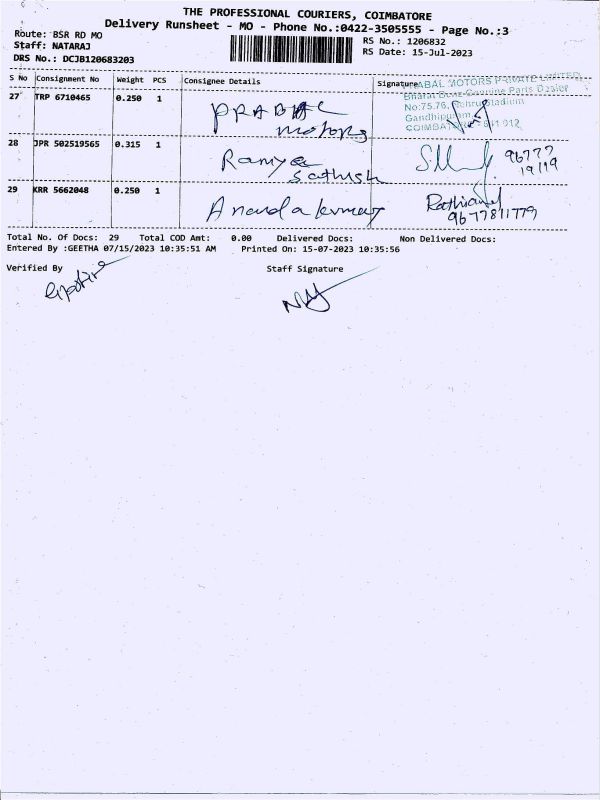 THE PROFESSIONAL COURIERS, COIMBATORE
Delivery Runsheet - MO - Phone No.:0422-3505555 - Page No.:3
Route: BSR RD MO
RS No.: 1206832
Staff: NATARAJ
RS Date: 15-Jul-2023
DRS No.: DCJB120683203
S No Consignment No Weight PCS Consignee Details Signature
27 TRP 6710465 0.250 1 PRABAL
motors
ABAL MOTORS PRIVATE LIMITED
Bharat Benz Genuine Parts Dealer
No:75,76, Nehru Stadium
Gandhipuram,
COIMBATORE - 641 012
28 JPR 502519565 0.315 1 Ramya
Sathish
96777
19119
29 KRR 5662048 0.250 1 Anandakumar
9677811779
Total No. Of Docs: 29 Total COD Amt: 0.00 Delivered Docs: Non Delivered Docs:
Entered By :GEETHA 07/15/2023 10:35:51 AM Printed On: 15-07-2023 10:35:56
Verified By Staff Signature